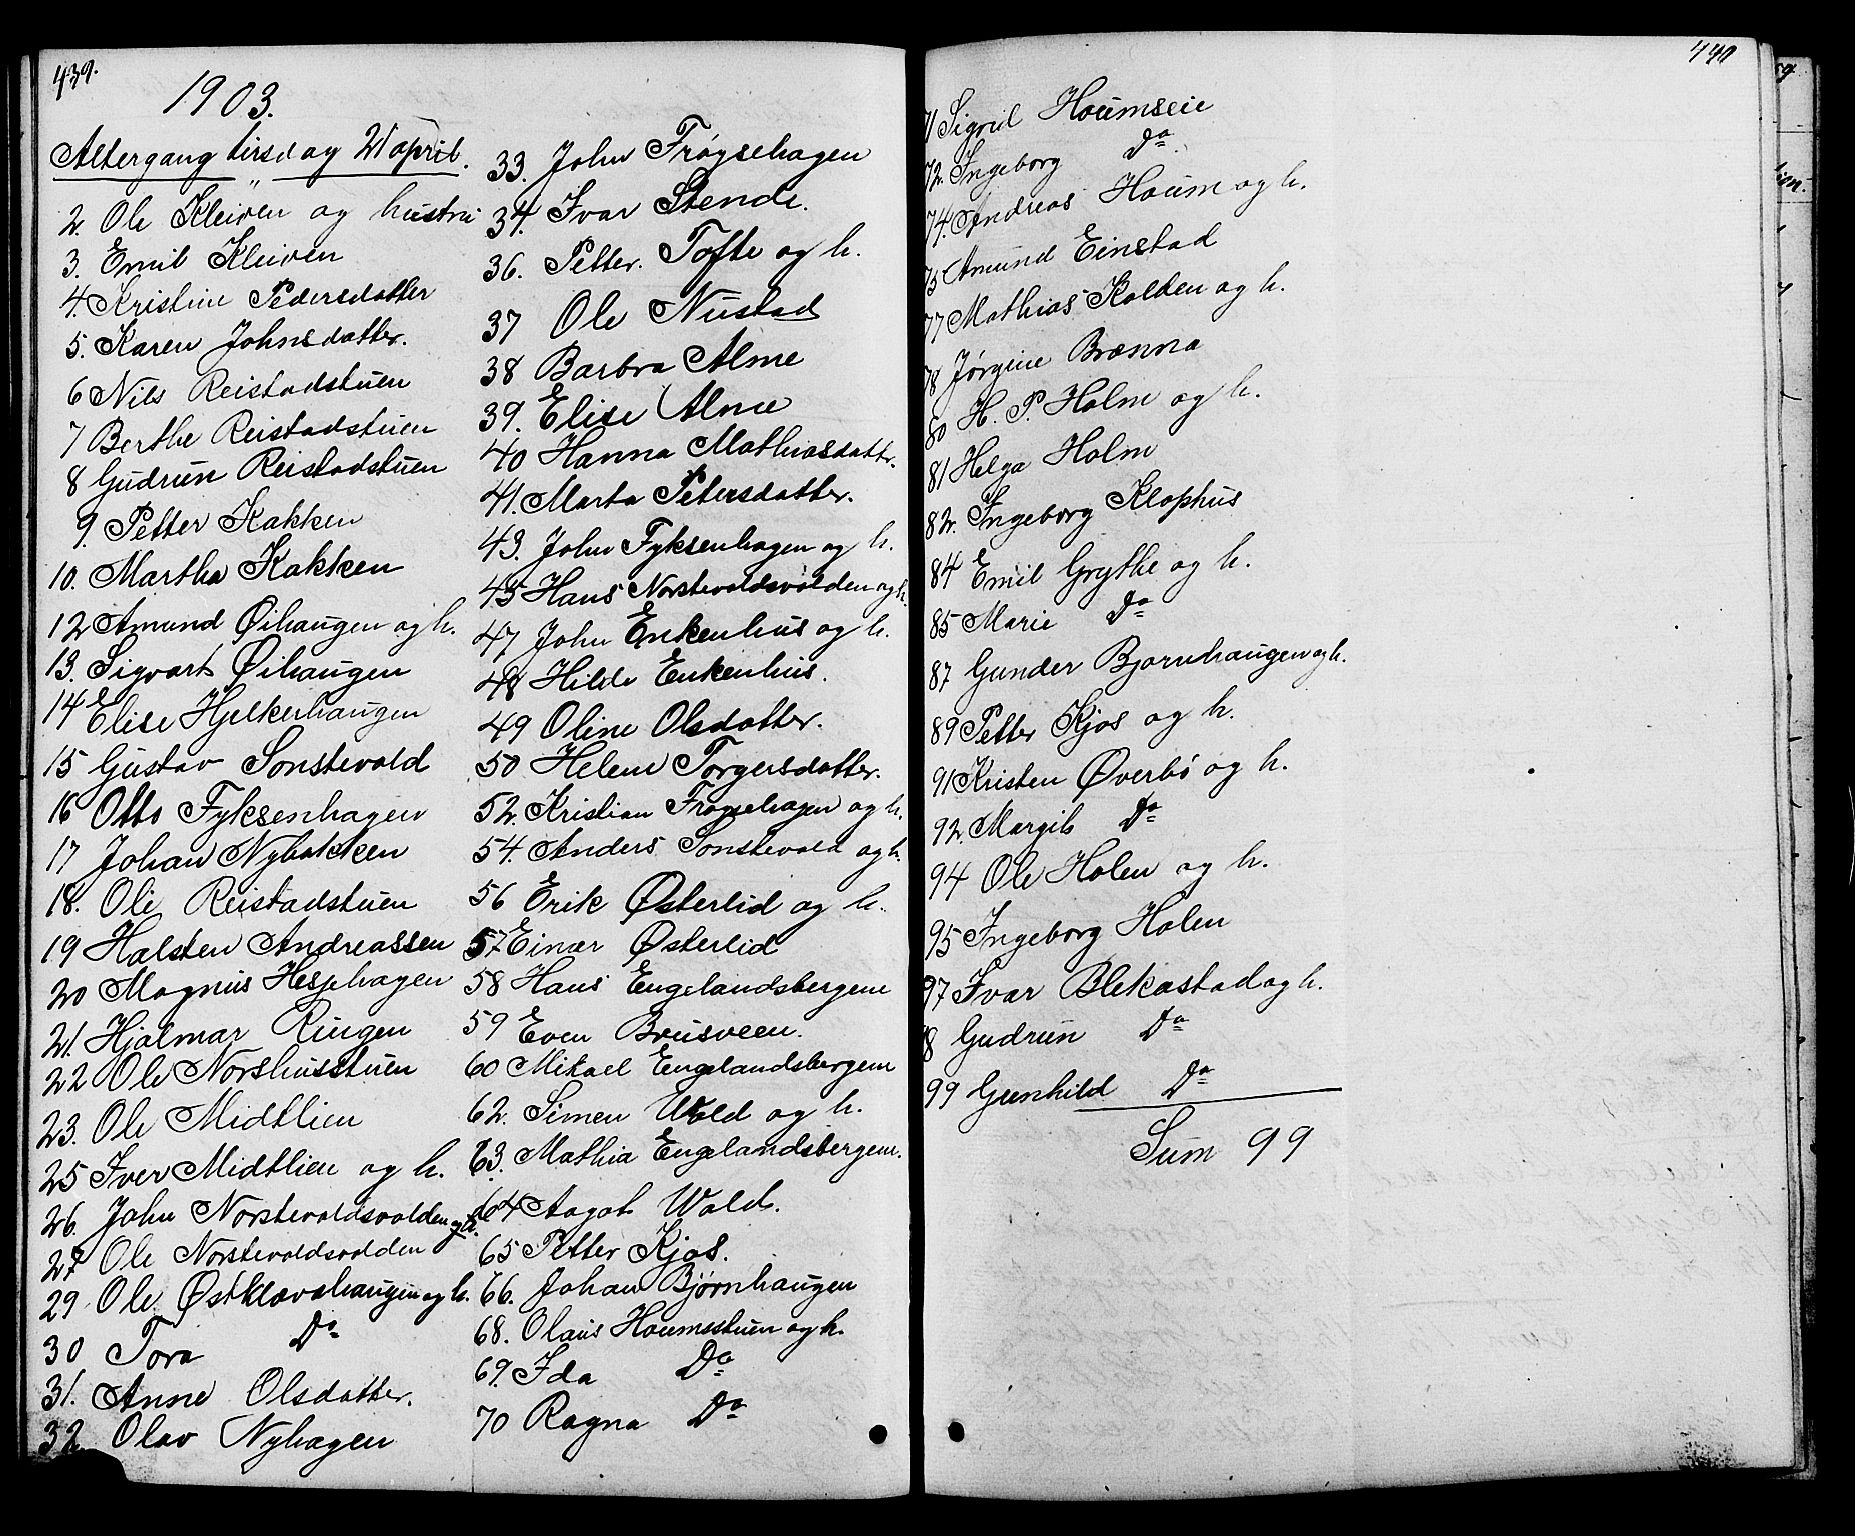 439.
1903.
Altergang tirsdag 21 april.
2. Ole Kleiven og hustru
3. Emil Kleiven
4. Kristine Pedersdatter
5. Karen Johnsdatter.
6 Nils Reistadstuen
7 Berthe Reistadstuen
8 Gudrun Reistadstuen
9. Petter Kakken
10. Martha Kakken
12 Amund Øihaugen og h.
13. Sigvart Øihaugen
14 Elise Hjelkerhaugen
15 Gustav Sonstevold
16 Otto Fyksenhagen
17 Johan Nybakken
18. Ole Reistadstuen
19 Halsten Andreassen
20 Magnus Hesjehagen
21. Hjalmar Ringen
22 Ole Norshusstuen
23. Ole Midtlien
25 Iver Midtlien og h.
26. John Norstevoldsvolden og h.
27 Ole Norstevoldsvolden
29 Ole Østklævahaugen og h.
30 Tora Do
31. Anne Olsdatter.
32 Olav Nyhagen
33. John Frøysehagen
34. Ivar Stende.
36. Petter. Tofte og h.
37 Ole Nustad
38 Barbra Alme
39. Elise Alme
40 Hanna Mathiasdatter.
41. Marta Petersdatter.
43. John Fyksenhagen og h.
45 Hans Norstevoldsvolden og h.
47 John Enkenhus og h.
48 Hilde Enkenhus.
49 Oline Olsdatter.
50 Helene Torgersdatter.
52. Kristian Frøysehagen og h.
54. Anders Sonstevold og h.
56 Erik Østerlid og h.
57 Einar Østerlid
58 Hans Engelandsbergene
59 Even Brusveen.
60 Mikael Engelandsbergene
62. Simen Wold og h.
63. Mathia Engelandsbergene.
64 Aagot Wold.
65 Petter Kjos.
66. Johan Bjørnhaugen
68. Olaus Houmsstuen og h.
69. Ida Do
70 Ragna Do
440
71 Sigrid Houmseie
72. Ingeborg Do
74. Andreas Houm og h.
75 Amund Einstad
77 Mathias Kolden og h.
78 Jørgine Brænna
80 H. P. Holm og h.
81 Helga Holm
82. Ingeborg Klophus
84 Emil Grythe og h.
85 Marie Do
87 Gunder Bjørnhaugen og h.
89 Petter Kjos og h.
91 Kristen Øverbø og h.
92. Margit Do
94 Ole Holen og h.
95 Ingeborg Holen
97 Ivar Blekastad og h.
8 Gudrun Do
99 Gunhild Do
Sum 99